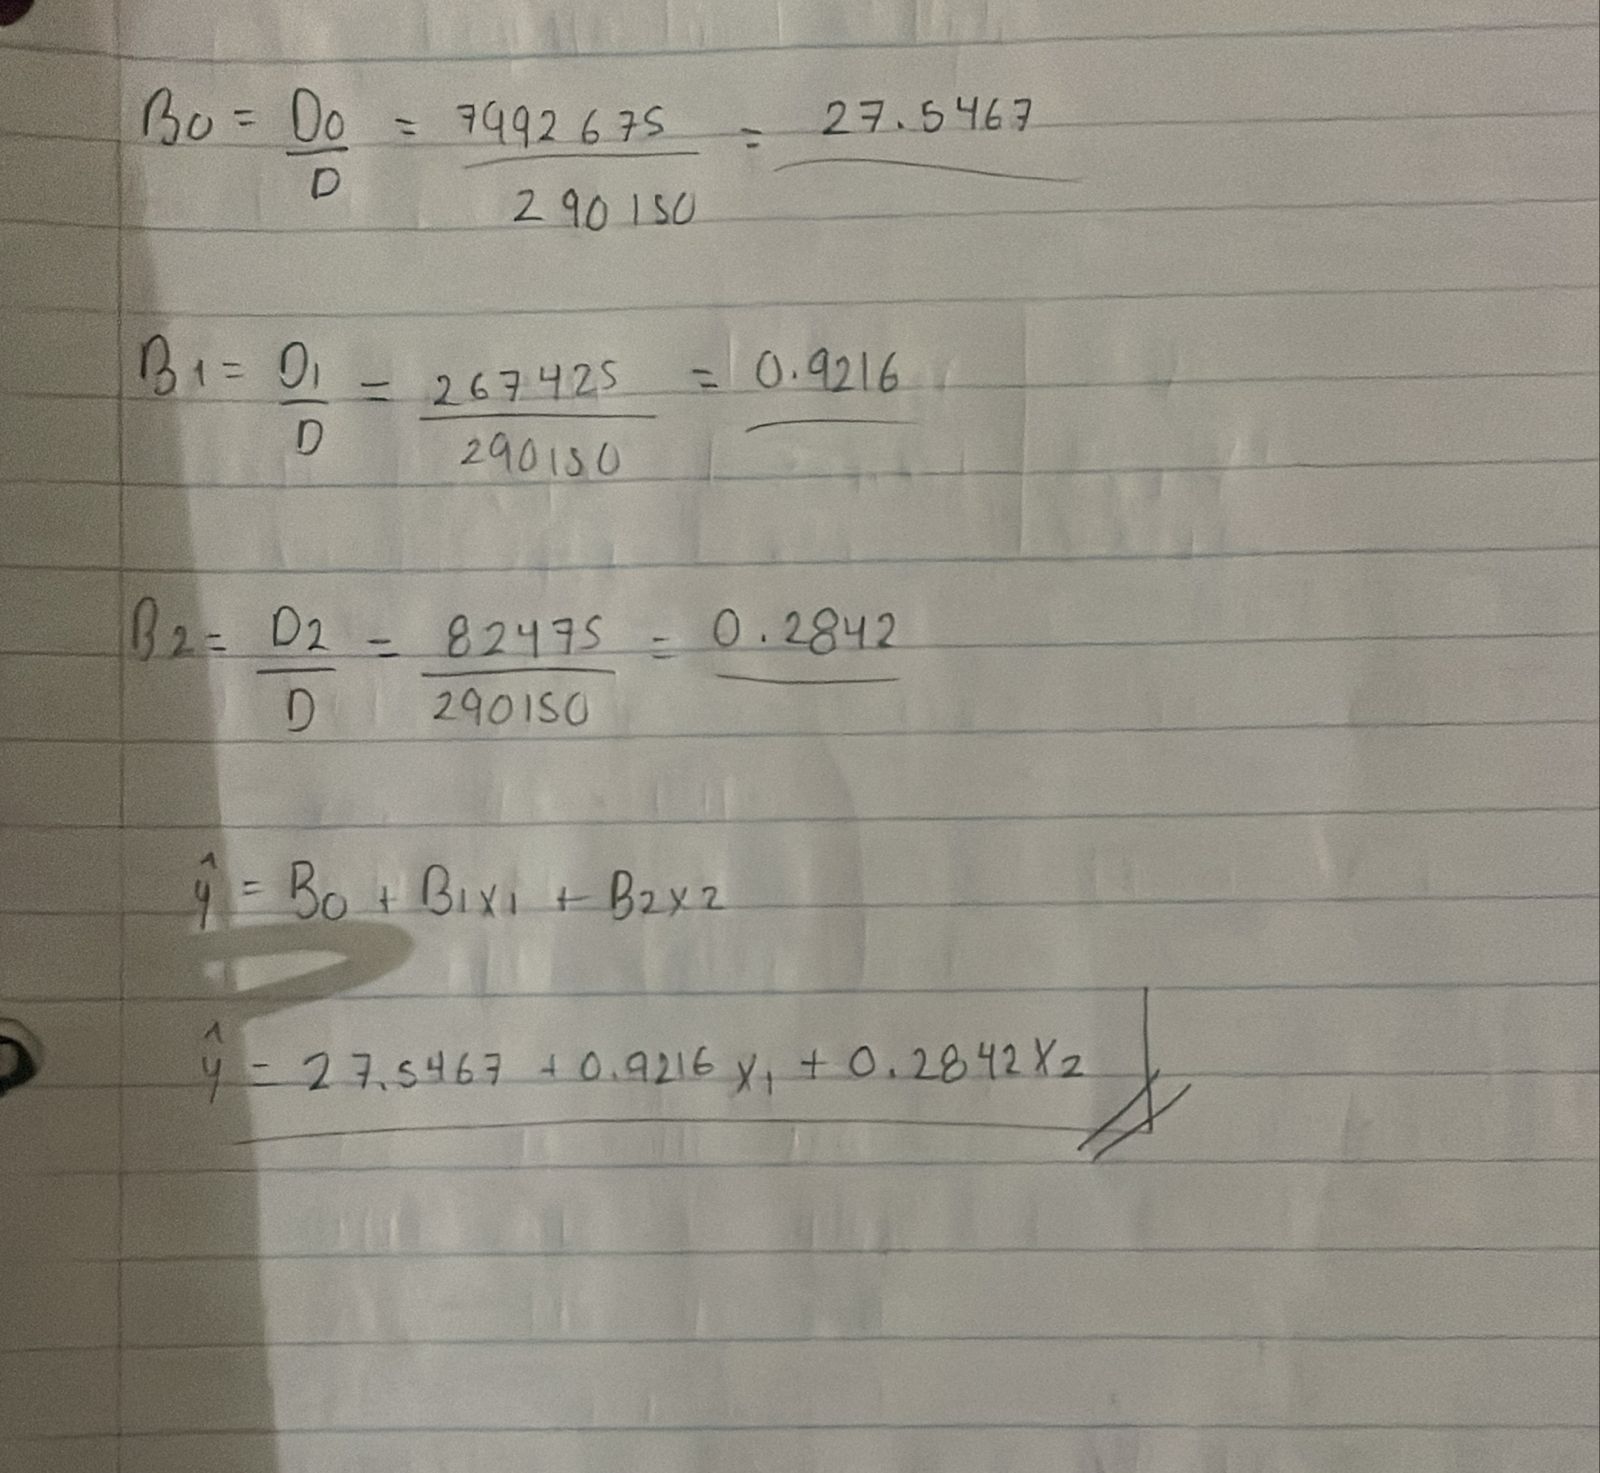 B0 = D0/D = 7992675/290150 = 27.5467
B1 = D1/D = 267425/290150 = 0.9216
B2 = D2/D = 82475/290150 = 0.2842
ŷ = B0 + B1x1 + B2x2
ŷ = 27.5467 + 0.9216x1 + 0.2842x2